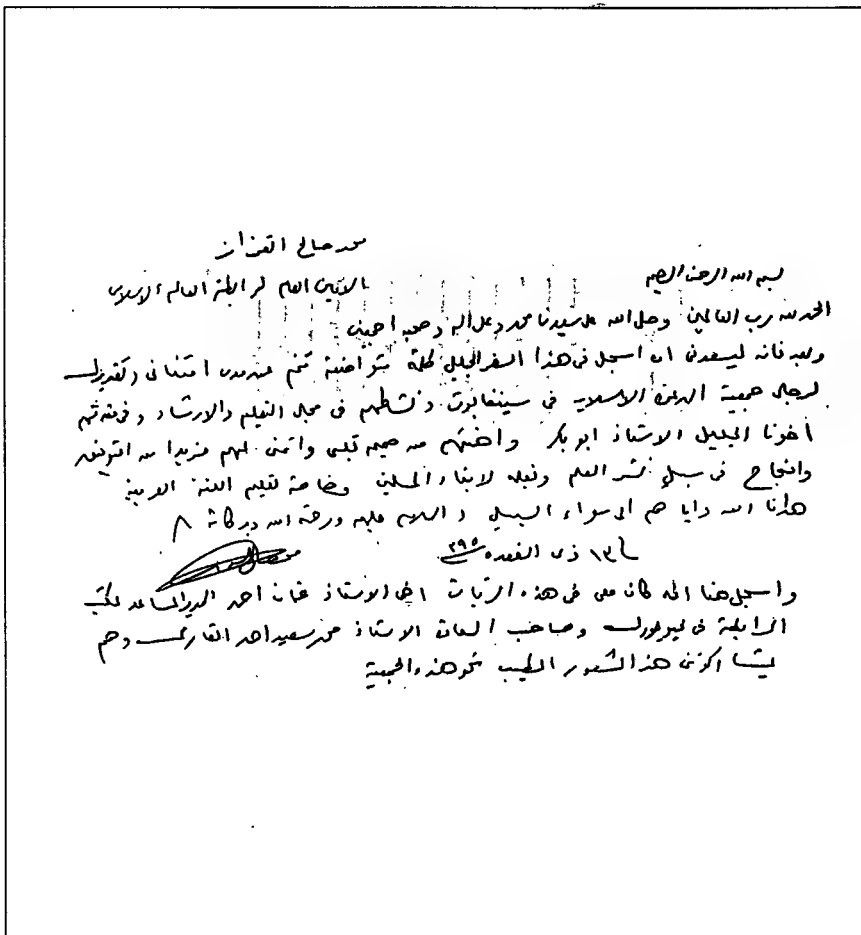 محمد صالح القزاز
الامين العام لرابطة العالم الاسلامى
بسم الله الرحمن الرحيم
الحمد لله رب العالمين وصلى الله على سيدنا محمد وعلى آله وصحبه اجمعين
وبعد فانه ليسعدنى ان اسجل فى هذا السفر الجليل كلمة متواضعة تنم عن مدى امتنانى وتقديرى
لرجال جمعية الدعوة الاسلامية فى سينغافورة ونشاطهم فى مجال التعليم والارشاد وفى مقدمتهم
أخونا الجليل الاستاذ ابو بكر واهنئهم من صميم قلبى واتمنى لهم مزيدا من التوفيق
والنجاح فى سبيل نشر العلم وبذله لابناء المسلمين وخاصة تعليم اللغة العربية
هدانا الله وايا هم الى سواء السبيل والسلام عليكم ورحمة الله وبركاته
١٣ ذى القعده ٣٩٥
واسجل هنا انه كان معى فى هذه الزيارات اخى الاستاذ احمد المدير المساعد لمكتب
الرابطة فى نيويورك وصاحب السعادة الاستاذ محمد سعيد احمد وهم
يشاركوننى هذا الشعور الطيب نحو هذه الجمعية